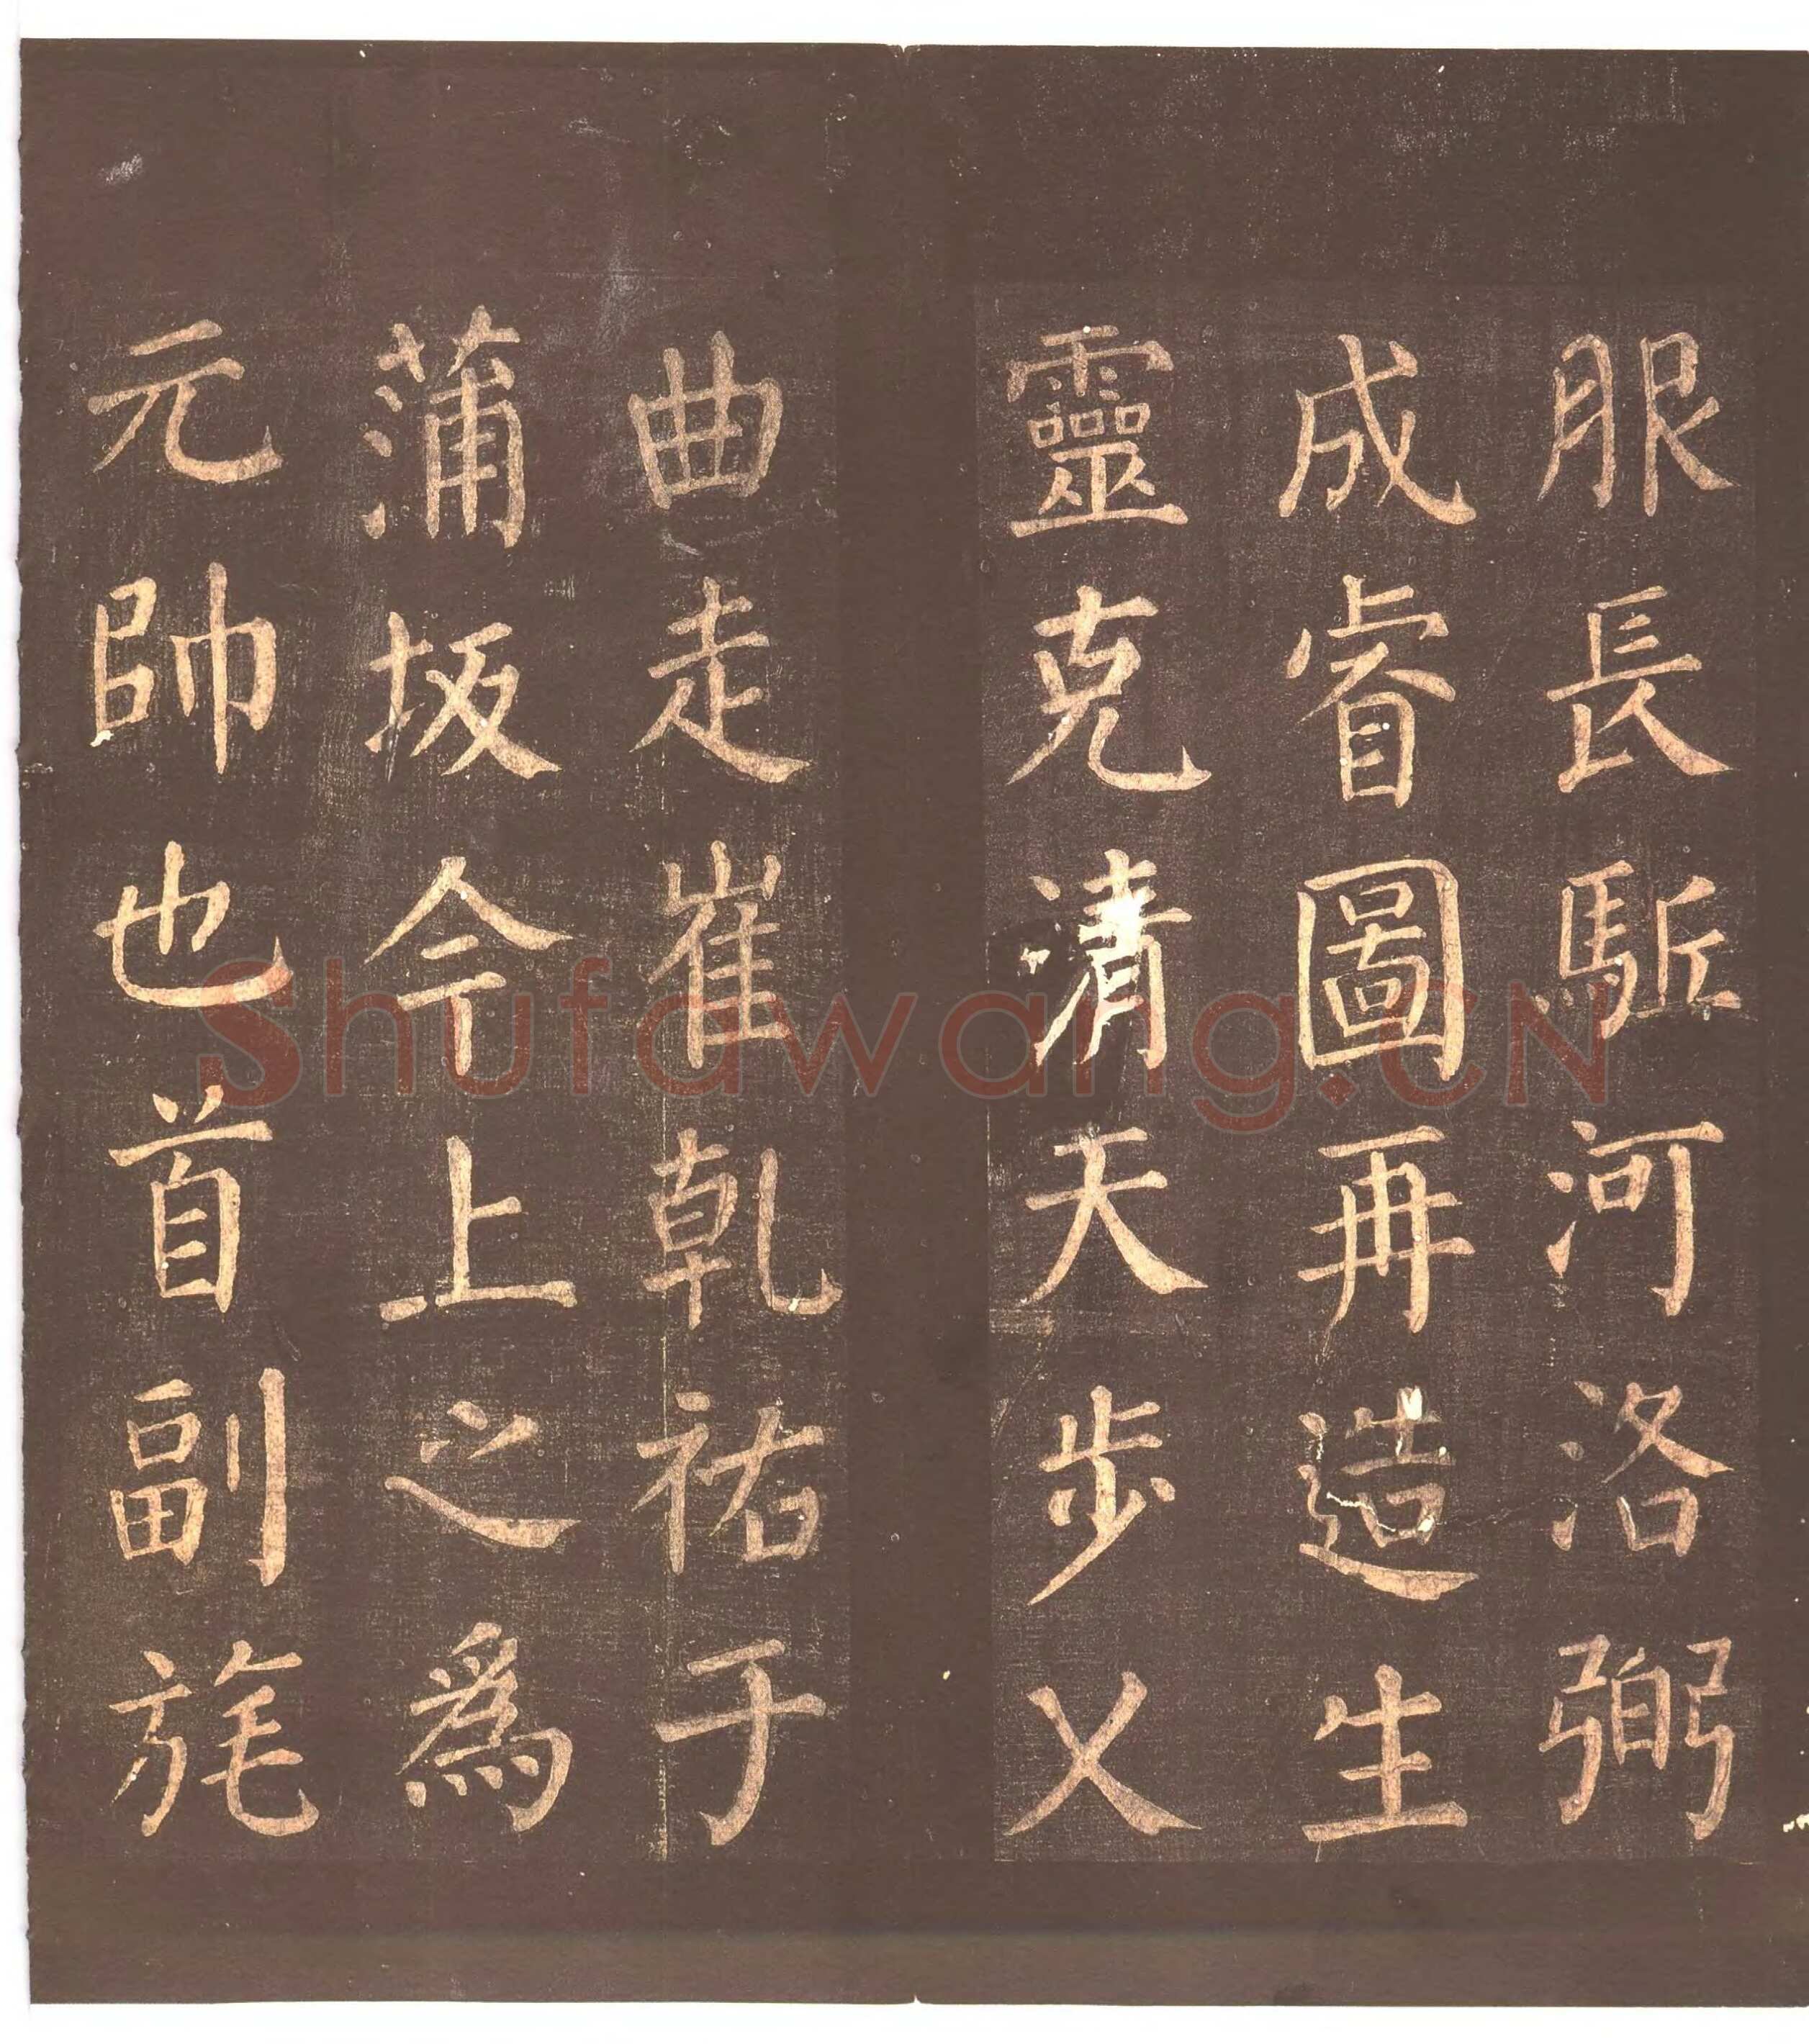 服長駈河洛弼
成睿圖再造生
靈克清天步乂
曲走崔乹祐于
蒲坂今上之爲
元帥也首副旄
Shufawang.CN